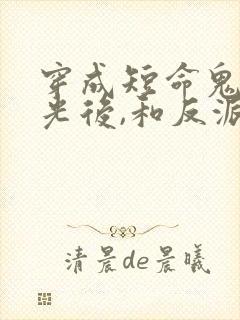 穿成短命鬼
光後,和反派
清晨de晨曦